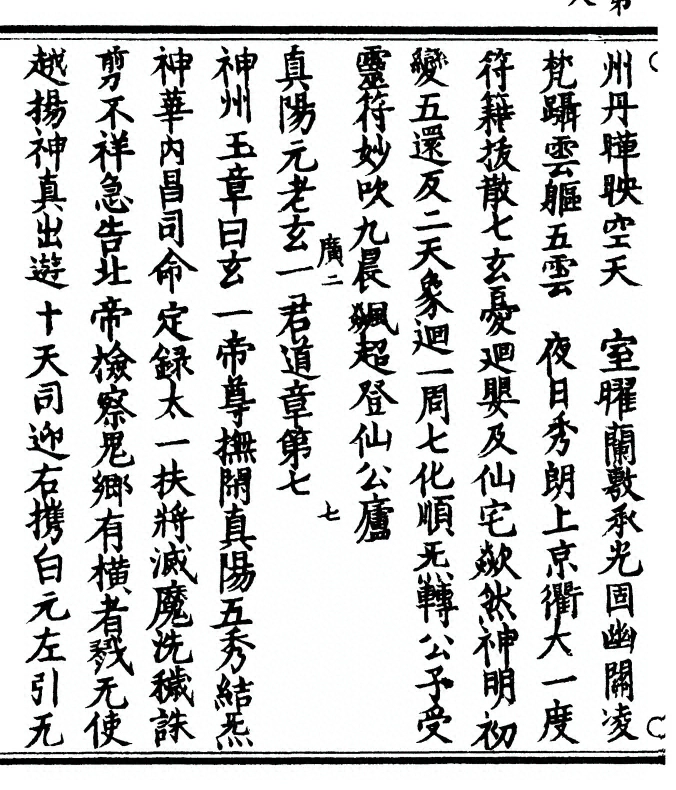 州丹暉映空天　室曜蘭敷承光固幽關凌
梵躡雲軀五雲　夜日秀朗上京衢大一度
符籍拔散七玄憂迴嬰及仙宅歘然神明初
變五還反二天象迴一周七化順炁轉公子受
靈符妙吹九晨飈超登仙公廬
廣二　七
真陽元老玄一君道章第七
神州玉章曰玄一帝尊撫閑真陽五秀結炁
神華內昌司命定録太一扶將滅魔洗穢誅
剪不祥急告北帝檢察鬼鄉有橫者戮无使
越揚神真出遊十天司迎右携白元左引无